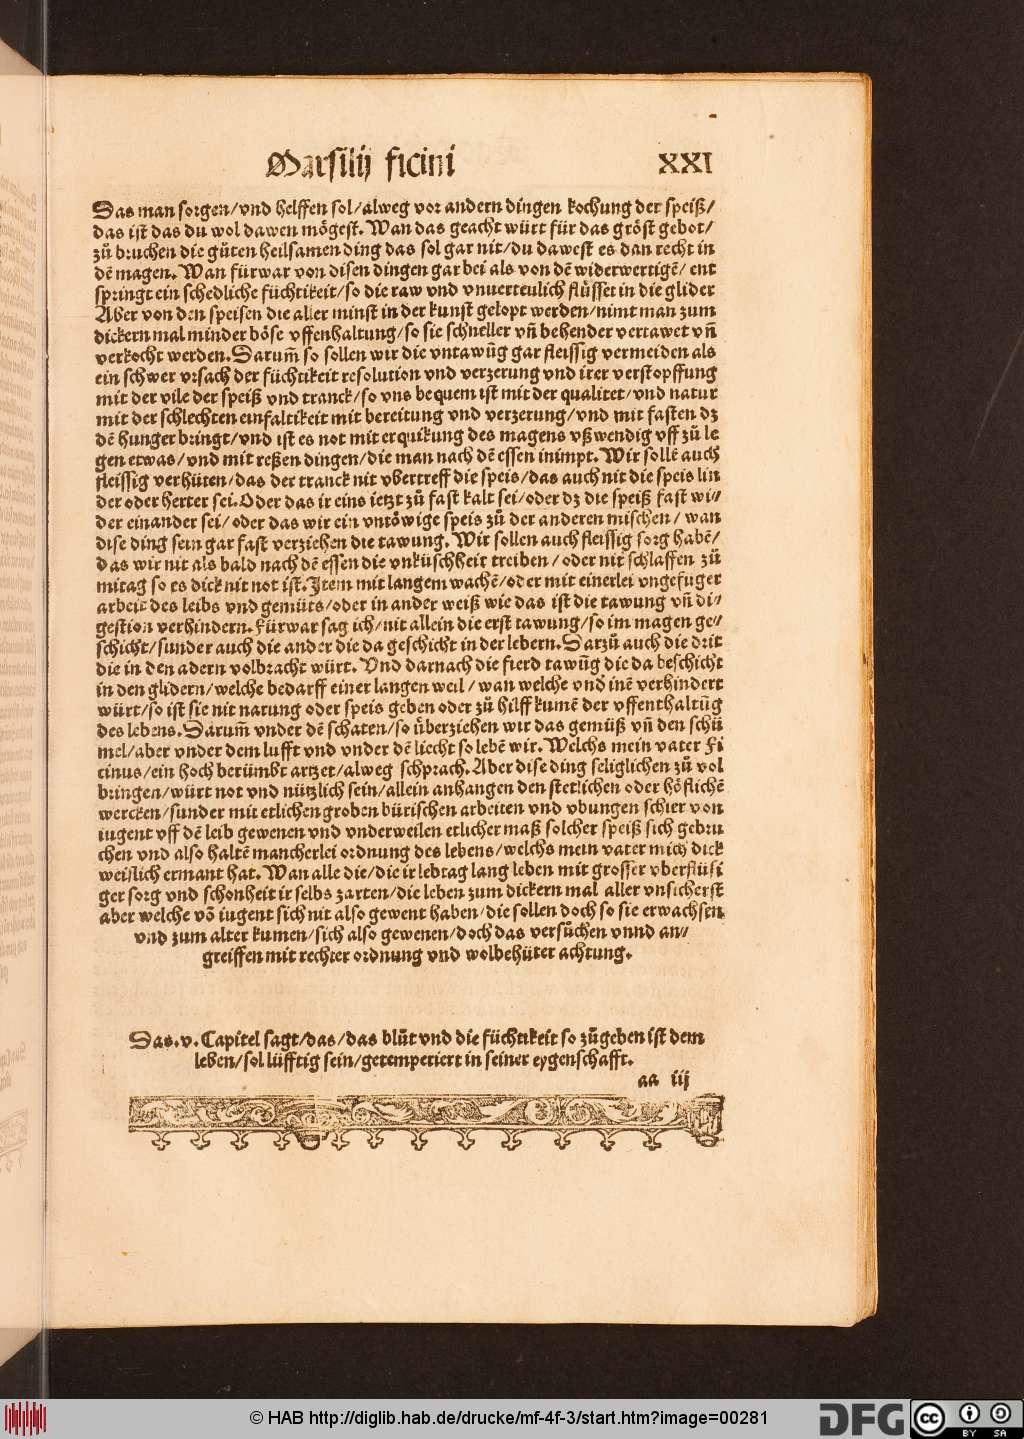 Marsilij ficini XXI
Das man sorgen/vnd helffen sol/alweg vor andern dingen kochung der speiß/
das ist das du wol dawen mögest. Wan das geacht würt für das gröst gebot/
zů bruchen die gůten heilsamen ding das sol gar nit/du dawest es dan recht in
dē magen. Wan fürwar von disen dingen gar bei als von dē widerwertigē/ ent
springt ein schedliche füchtikeit/so die raw vnd vnuerteulich flüsset in die glider
Aber von den speisen die aller minst in der kunst gelopt werden/nimt man zum
dickern mal minder böse vffenhaltung/so sie schneller vñ behender vertawet vñ
verkocht werden. Darum̄ so sollen wir die vntawūg gar fleissig vermeiden als
ein schwer vrsach der füchtikeit resolution vnd verzerung vnd irer verstopffung
mit der vile der speiß vnd tranck/so vns bequem ist mit der qualitet/vnd natur
mit der schlechten einfaltikeit mit bereitung vnd verzerung/vnd mit fasten dz
dē hunger bringt/vnd ist es not mit erquikung des magens vßwendig vff zů le
gen etwas/vnd mit reßen dingen/die man nach dē essen inimpt. Wir sollē auch
fleissig verhüten/das der tranck nit vbertreff die speis/das auch nit die speis lin
der oder herter sei. Oder das ir eins ietzt zů fast kalt sei/oder dz die speiß fast wi//
der einander sei/oder das wir ein vntöwige speis zů der anderen mischen/ wan
dise ding sein gar fast verziehen die tawung. Wir sollen auch fleissig sorg habē/
das wir nit als bald nach dē essen die vnküschheit treiben/oder nit schlaffen zů
mitag so es dick nit not ist. Item mit langem wachē/oder mit einerlei vngefüger
arbeit des leibs vnd gemüts/oder in ander weiß wie das ist die tawung vñ di//
gestion verhindern. Fürwar sag ich/nit allein die erst tawung/so im magen ge//
schicht/sunder auch die ander die da geschicht in der lebern. Darzů auch die drit
die in den adern volbracht würt. Vnd darnach die fierd tawūg die da beschicht
in den glidern/welche bedarff einer langen weil/ wan welche vnd inē verhindert
würt/so ist sie nit narung oder speis geben oder zů hilff kumē der vffenthaltūg
des lebens. Darum̄ vnder dē schaten/so überziehen wir das gemüß vñ den schü
mel/aber vnder dem lufft vnd vnder dē liecht so lebē wir. Welchs mein vater Fi
cinus/ein hoch berümbt artzet/alweg schprach. Aber dise ding seliglichen zů vol
bringen/würt not vnd nützlich sein/allein anhangen den stetlichen oder höflichē
wercken/sunder mit etlichen groben bürischen arbeiten vnd vbungen schier von
iugent vff dē leib gewenen vnd vnderweilen etlicher maß solcher speiß sich gebru
chen vnd also haltē mancherlei ordnung des lebens/welchs mein vater mich dick
weißlich ermant hat. Wan alle die/die ir lebtag lang leben mit grosser vberflüsi
ger sorg vnd schonheit ir selbs zarten/die leben zum dickern mal aller vnsicherst
aber welche vō iugent sich nit also gewent haben/die sollen doch so sie erwachsen
vnd zum alter kumen/sich also gewenen/doch das versůchen vnnd an//
greiffen mit rechter ordnung vnd wolbehüter achtung.
Das.v. Capitel sagt/das/das blůt vnd die füchtikeit so zůgeben ist dem
leben/sol lüfftig sein/getemperiert in seiner eygenschafft.
aa iij
© HAB http://diglib.hab.de/drucke/mf-4f-3/start.htm?image=00281
DFG
cc BY SA